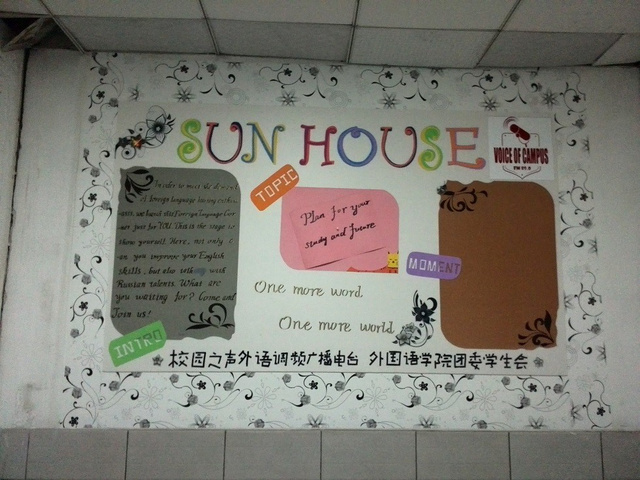 SUN HOUSE
VOICE OF CAMPUS
TOPIC
In order to meet the
of foreign language
just for YOU. This is the stage to
show yourself. Here, not only
you improve your English
skills, but also with
Russian talents. What are
you waiting for? Come and
Join us!
INTRO
Plan for your
study and future
MOMENT
One more word
One more world
校园之声外语调频广播电台 外国语学院团委学生会